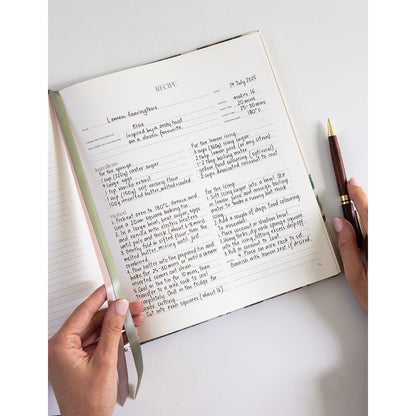 RECIPE
TITLE Lemon lamingtons
DATE 19 July 2025
FROM THE KITCHEN OF Elise
THE STORY OF THE RECIPE Inspired by a zesty twist
on a classic favourite.
makes 16
20 mins
25-30 mins
180°C
Ingredients
For the sponge
1 cup (220g) caster sugar
4 large eggs
1 tsp vanilla extract
1 cup (150g) self-raising flour
100g unsalted butter, melted + cooled
For the lemon icing
3 cups icing sugar
lemon juice
2 tbsp boiling water
yellow food colouring (optional)
2 cups desiccated coconut to coat
Method
1. Preheat oven to 180°C. Grease and
line a 20cm square baking tin.
2. In a large bowl, beat sugar, eggs
and vanilla with electric beaters
until pale and thick (about 6-8 mins).
3. Gently fold in sifted flour, then
melted butter, mixing until just
combined.
4. Pour batter into the prepared tin and
bake for 25-30 mins or until a skewer
inserted comes out clean.
5. Cool in the tin for 10 mins, then
transfer to a wire rack to cool
completely. Chill in the fridge for
before cutting.
Cut into even squares (about 16).
For the icing:
1. Sift icing sugar into a bowl. Stir
in lemon juice and enough boiling
water to make a runny but thick
icing.
2. Add a couple of drops food colouring
3. Place coconut in another bowl.
Using two forks, dip each sponge square
into the icing, letting excess drip off.
4. Roll in coconut to coat.
5. Place on wire rack to set.
Garnish with lemon zest if desired.